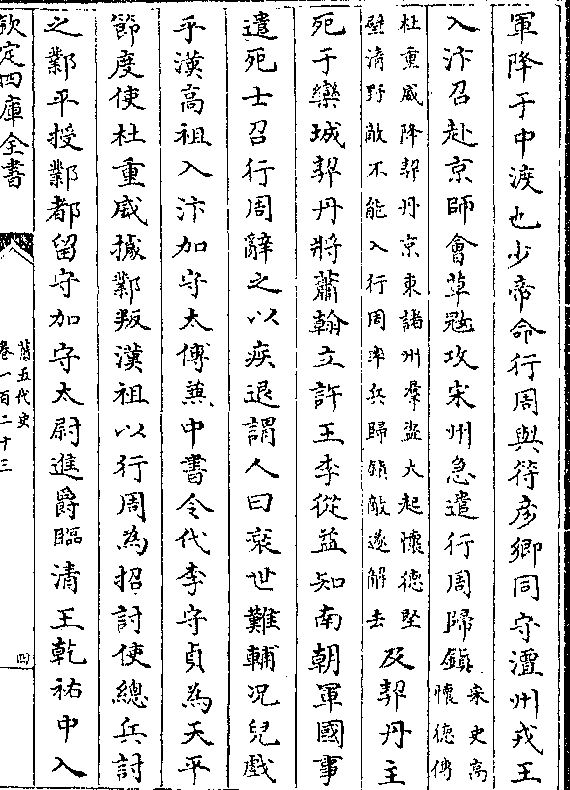 軍降于中渡也少帝命行周與符彥卿同守澶州戎王
入汴召赴京師會草𡨥攻宋州急遣行周歸鎮宋史高
懷德傳
杜重威降契丹京東諸州羣盜大起懷德堅
壁清野敵不能入行周率兵歸鎮敵遂解去及契丹主
死于欒城契丹將蕭翰立許王李從益知南朝軍國事
遣死士召行周辭之以疾退謂人曰衰世難輔况兒戲
乎漢高祖入汴加守太傅兼中書令代李守貞為天平
節度使杜重威據鄴叛漢祖以行周為招討使總兵討
之鄴平授鄴都留守加守太尉進爵臨清王乾祐中入
欽定四庫全書
舊五代史
卷一百二十三
四